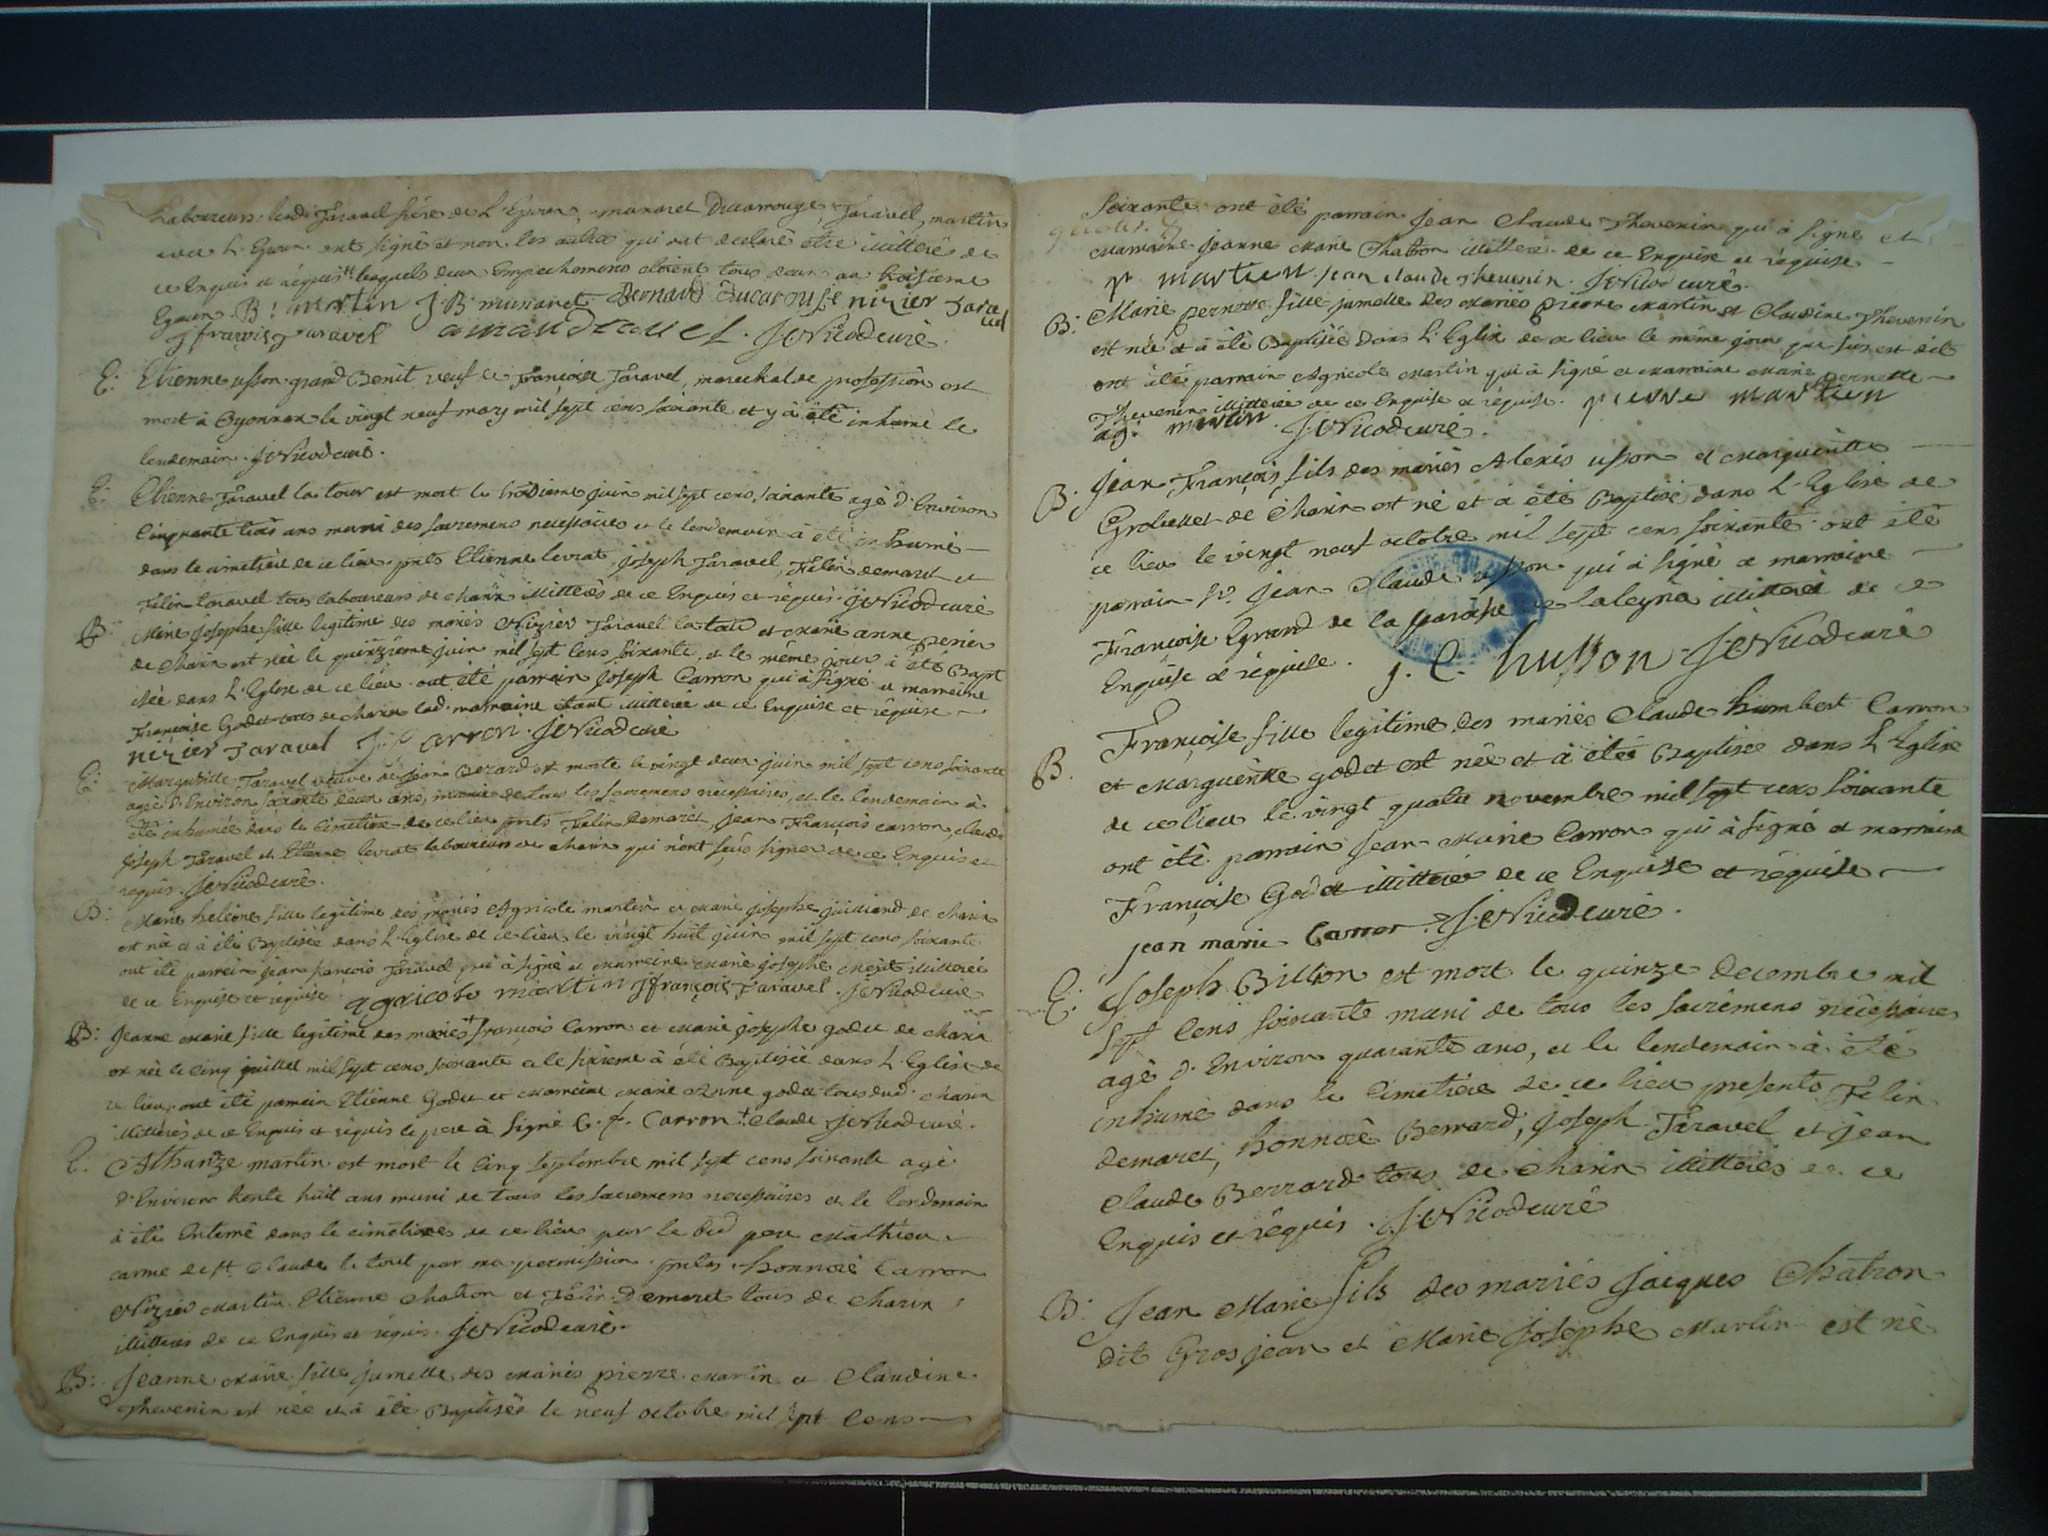 Laboureurs led. Taravel frère de L'Epoux, munaret Ducarrouge, Taravel, martin
avec L'Epoux ont signé et non les autres qui ont declaré etre illitterés de
ce Enquis et requis lesquels deux Empechemens etoient tous deux au troisieme
Egaux B: martin J.B. munaret Bernard Ducarouge nizier Tara
vel
J francois Taravel J. Nicod curé
E: Etienne usson grand Benit, veuf de Françoise Taravel, marechal de profession est
mort à Oyonnax le vingt neuf mars mil sept cens soixante et y à été inhumé le
lendemain. J. Nicod curé.
E: Etienne Taravel la tour est mort le troisieme juin mil sept cens soixante agé d'Environ
Cinquante trois ans muni des sacremens necessaires et le lendemain à été inhumé
dans le cimetière de ce lieu. prnts Etienne levrat, joseph Taravel, Felix demaret et
Felix Taravel tous laboureurs de charix illitterés de ce Enquis et requis. J. Nicod curé
B: Marie josephe fille legitime des mariés Nizier Taravel la tour et Marie anne perier
de charix est née le quinzième juin mil sept cens soixante et le même jour à été Bapt
isée dans L'Eglise de ce lieu. ont été parrain joseph Carron qui à signé et marraine
Françoise Godet tous de charix lad. marraine etant illitterée de ce Enquise et requise
nizier Taravel J. Carron. J. Nicod curé
E: Marguerite Taravel veuve de jean Berard est morte le vingt deux juin mil sept cens soixante
agée d'Environ soixante deux ans, munie de tous les sacremens nécessaires, et le lendemain à
été inhumée dans le cimetière de ce lieu prnts Felix Demaret, jean François carron, claude
joseph Taravel et Etienne levrat laboureurs de charix qui n'ont sçu signer de ce Enquis et
requis. J. Nicod curé.
B: Marie heleine fille legitime des mariés Agricole martin et Marie josephe juilliard de charix
est née et à été Baptisée dans L'Eglise de ce lieu le vingt huit juin mil sept cens soixante
ont été parrain jean françois Taravel qui à signé et marraine Marie josephe illitterée
de ce Enquise et requise agricole martin J françois Taravel. J. Nicod curé
B: Jeanne Marie fille legitime des mariés + françois Carron et Marie josephe godet de charix
est née le cinq juillet mil sept cens soixante et le sixieme à été Baptisée dans L'Eglise de
ce lieu. ont été parrain Etienne Godet et Marraine Marie Anne godet tous dud. charix
illitterés de ce Enquis et requis le pere à signé C. f. Carron + claude J. Nicod curé.
E. Athanaze martin est mort le cinq septembre mil sept cens soixante agé
d'Environ trente huit ans muni de tous les sacremens necessaires et le lendemain
à été Enterré dans le cimetiere de ce lieu par le Rd pere Mathieu
carme de St. Claude le tout par ma permission. prnts honnoré Carron
Nizier Martin Etienne chatron et Felix Demaret tous de charix
illitterés de ce Enquis et requis. J. Nicod curé.
B: Jeanne Marie fille jumelle des mariés pierre Martin et Claudine
Thevenin est née et à été Baptisée le neuf octobre mil sept Cens
Soixante ont été parrain jean Claude Thevenin qui à signé et
marraine jeanne Marie Chatron illitterée de ce Enquise et requise
p. martien. jean claude thevenin. J. Nicod curé.
B: Marie pernette fille jumelle des mariés pierre Martin et Claudine Thevenin
est née et à été Baptisée dans L'Eglise de ce lieu le même jour que sus est dit
ont été parrain Agricole Martin qui à signé et marraine Marie pernette
Thevenin illitterée de ce Enquise et requise. pierre martien
ag: martin J. Nicod curé.
B: Jean François fils des mariés Alexis usson et Marguerite
Grobellet de charix est né et à été Baptisé dans L'Eglise de
ce lieu le vingt neuf octobre mil sept cens soixante. ont été
parrain Sr. jean Claude usson qui à signé et marraine
Françoise Egraud de la paroisse de laleyria illitterée de ce
Enquise et requise. j. C. husson J. Nicod curé
B. Françoise fille legitime des mariés Claude humbert Carron
et Marguerite godet est née et à été Baptisée dans L'Eglise
de ce lieu le vingt quatre novembre mil sept cens soixante
ont été parrain jean Marie Carron qui à signé et marraine
Françoise Godet illitterée de ce Enquise et requise
jean marie Carron J. Nicod curé.
E: Joseph Billion est mort le quinze decembre mil
sept cens soixante muni de tous les sacremens nécessaires
agé d'Environ quarante ans, et le lendemain à été
inhumé dans le cimetière de ce lieu presents Felix
demaret, honnoré Berrard, joseph Taravel et jean
claude Berrard tous de charix illitterés de ce
Enquis et requis. J. Nicod curé
B: Jean Marie fils des mariés Jacques Chatron
dit Grosjean et Marie josephe Martin est né